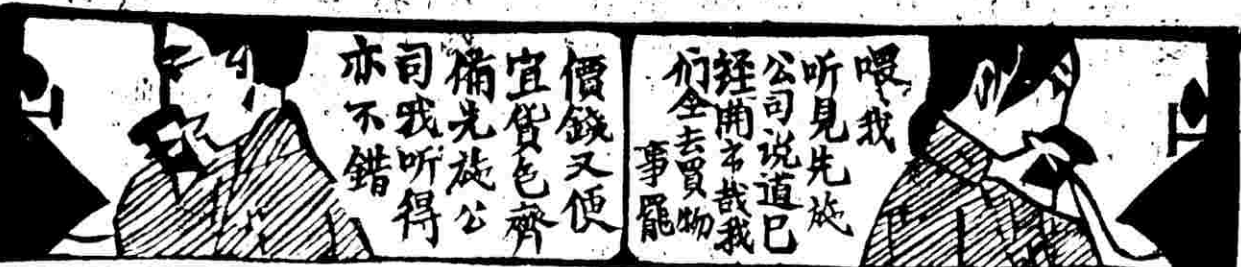 喂我
听見先施
公司说道已
經開市哉我
们全去買物
事罷
價錢又便
宜貨色齊
備先施公
司我听得
亦不錯